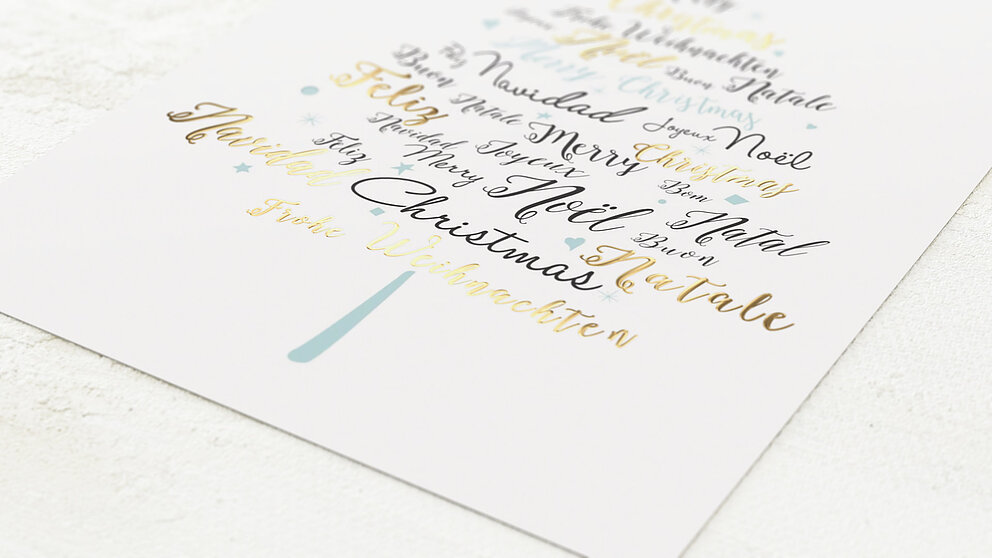 Christmas
Frohe Weihnachten
Noël Buon Natale
Merry Christmas
Feliz Navidad Joyeux Noël
Buon Natale Merry Christmas
Feliz Navidad Joyeux Bom Natal
Navidad Feliz Merry Noël Buon Natale
Christmas
Frohe Weihnachten